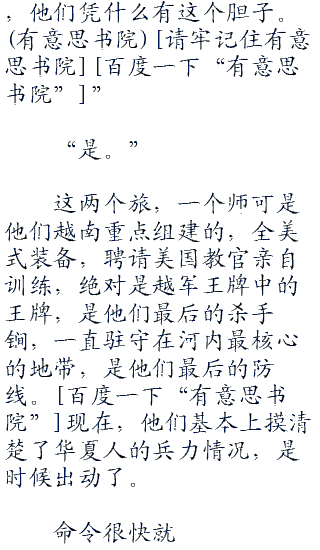 ，他们凭什么有这个胆子。
(有意思书院)[请牢记住有意
思书院][百度一下“有意思
书院”]”
“是。”
这两个旅，一个师可是
他们越南重点组建的，全美
式装备，聘请美国教官亲自
训练，绝对是越军王牌中的
王牌，是他们最后的杀手
锏，一直驻守在河内最核心
的地带，是他们最后的防
线。[百度一下“有意思书
院”]现在，他们基本上摸清
楚了华夏人的兵力情况，是
时候出动了。
命令很快就